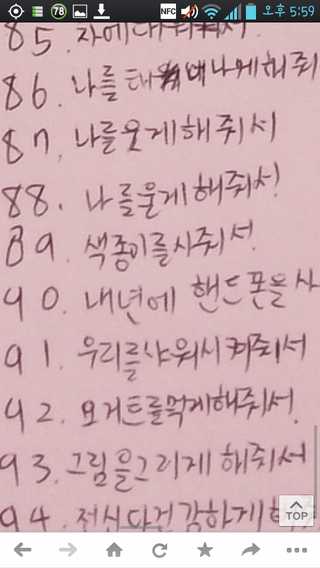 78 NFC 오후 5:59
85. 차에
86. 나를 태어나게 해주
87. 나를 웃게 해줘서
88. 나를 울게 해줘서
89. 색종이를 사줘서
90. 내년에 핸드폰을 사
91. 우리를 샤워시켜줘서
92. 요거트를 먹게 해줘서
93. 그림을 그리게 해줘서
94. 정신 다 건강하게
TOP